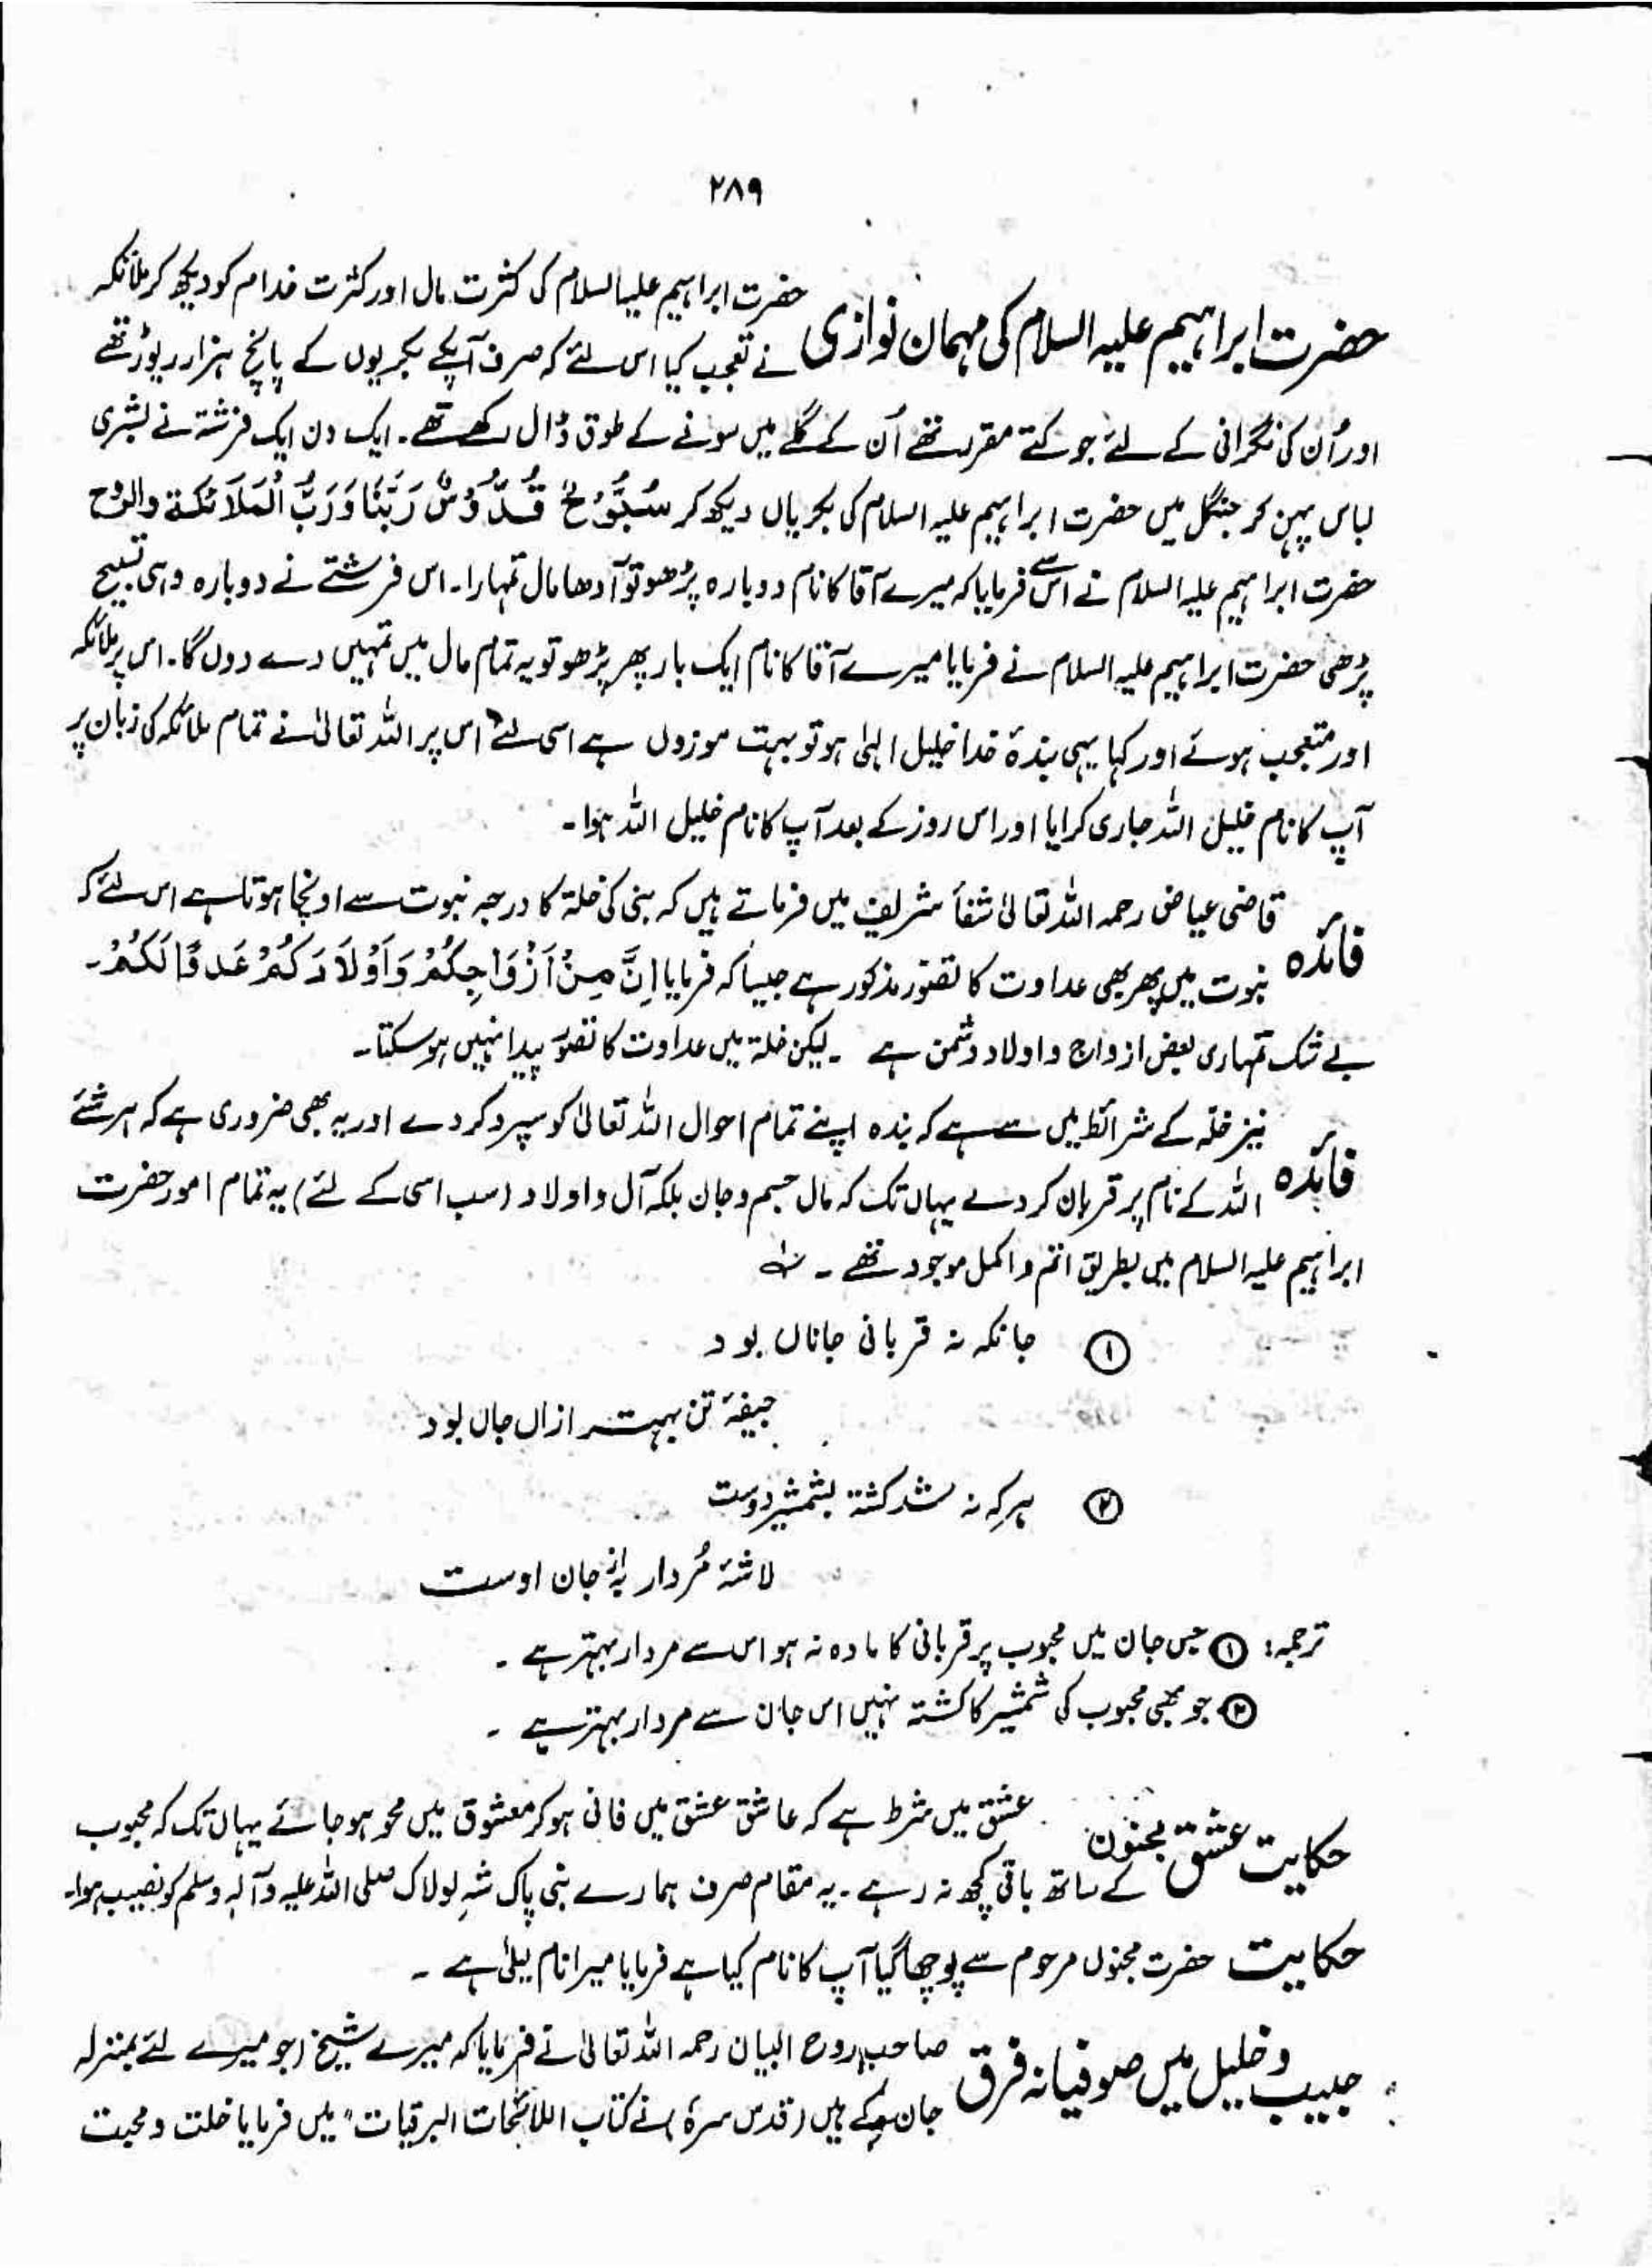 ۲۸۹
حضرت ابراہیم علیہ السلام کی مہمان نوازی
حضرت ابراہیم علیہ السلام کی کثرت مال اور کثرت خدام کو دیکھ کر ملائکہ
نے تعجب کیا اس لئے کہ صرف آپکے بکریوں کے پانچ ہزار ریوڑ تھے
اور اُن کی نگرانی کے لئے جو کتے مقرر تھے اُن کے گلے میں سونے کے طوق ڈال رکھے تھے۔ ایک دن ایک فرشتہ نے بشری
لباس پہن کر جنگل میں حضرت ابراہیم علیہ السلام کی بکریاں دیکھ کر سُبُّوْحٌ قُدُّوْسٌ رَبَّنَا وَرَبُّ الْمَلَائِکَۃ والرُّوح
حضرت ابراہیم علیہ السلام نے اس سے فرمایا کہ میرے آقا کا نام دوبارہ پڑھو تو آدھا مال تمہارا۔ اس فرشتے نے دوبارہ وہی تسبیح
پڑھی حضرت ابراہیم علیہ السلام نے فرمایا میرے آقا کا نام ایک بار پھر پڑھو تو یہ تمام مال میں تمہیں دے دوں گا۔ اس پر ملائکہ
اور متعجب ہوئے اور کہا یہی بندۂ خدا خلیل الہٰی ہو تو بہت موزوں ہے اسی لئے اس پر اللہ تعالیٰ نے تمام ملائکہ کی زبان پر
آپ کا نام خلیل اللہ جاری کرایا اور اس روز کے بعد آپ کا نام خلیل اللہ ہوا۔
فائدہ
قاضی عیاض رحمہ اللہ تعالیٰ شفأ شریف میں فرماتے ہیں کہ نبی کی خلۃ کا درجہ نبوت سے اونچا ہوتا ہے اس لئے کہ
نبوت میں پھر بھی عداوت کا تصور مذکور ہے جیسا کہ فرمایا اِنَّ مِنْ اَزْوَاجِکُمْ وَاَوْلَادَکُمْ عَدوًّا لَکُمْ۔
بے شک تمہاری بعض ازواج و اولاد دشمن ہے ۔ لیکن خلۃ میں عداوت کا تصوّر پیدا نہیں ہو سکتا۔
فائدہ
نیز خلّہ کے شرائط میں سے ہے کہ بندہ اپنے تمام احوال اللہ تعالیٰ کو سپرد کر دے اور یہ بھی ضروری ہے کہ ہر شئے
اللہ کے نام پر قربان کر دے یہاں تک کہ مال جسم و جان بلکہ آل و اولاد (سب اسی کے لئے) یہ تمام امور حضرت
ابراہیم علیہ السلام میں بطریق اتم و اکمل موجود تھے ۔
① جانکہ نہ قربانی جاناں بود
جیفۂ تن بہتر ازاں جاں بود
② ہر کہ نہ شد کشتہ بشمشیر دوست
لاشۂ مُردار بہ از جان اوست
ترجمہ: ① جس جان میں محبوب پر قربانی کا مادہ نہ ہو اس سے مردار بہتر ہے ۔
② جو بھی محبوب کی شمشیر کا کشتہ نہیں اس جان سے مردار بہتر ہے ۔
حکایت عشق مجنون
عشق میں شرط ہے کہ عاشق عشق میں فانی ہو کر معشوق میں محو ہو جائے یہاں تک کہ محبوب
کے ساتھ باقی کچھ نہ رہے ۔ یہ مقام صرف ہمارے نبی پاک شہِ لولاک صلی اللہ علیہ وآلہٖ وسلم کو نصیب ہوا۔
حکایت حضرت مجنوں مرحوم سے پوچھا گیا آپ کا نام کیا ہے فرمایا میرا نام لیلیٰ ہے ۔
حبیب و خلیل میں صوفیانہ فرق
صاحب روح البیان رحمہ اللہ تعالیٰ نے فرمایا کہ میرے شیخ (جو میرے لئے بمنزلہ
جان کے ہیں (قدس سرہٗ) نے کتاب اللائحات البرقیات" میں فرمایا خلت و محبت